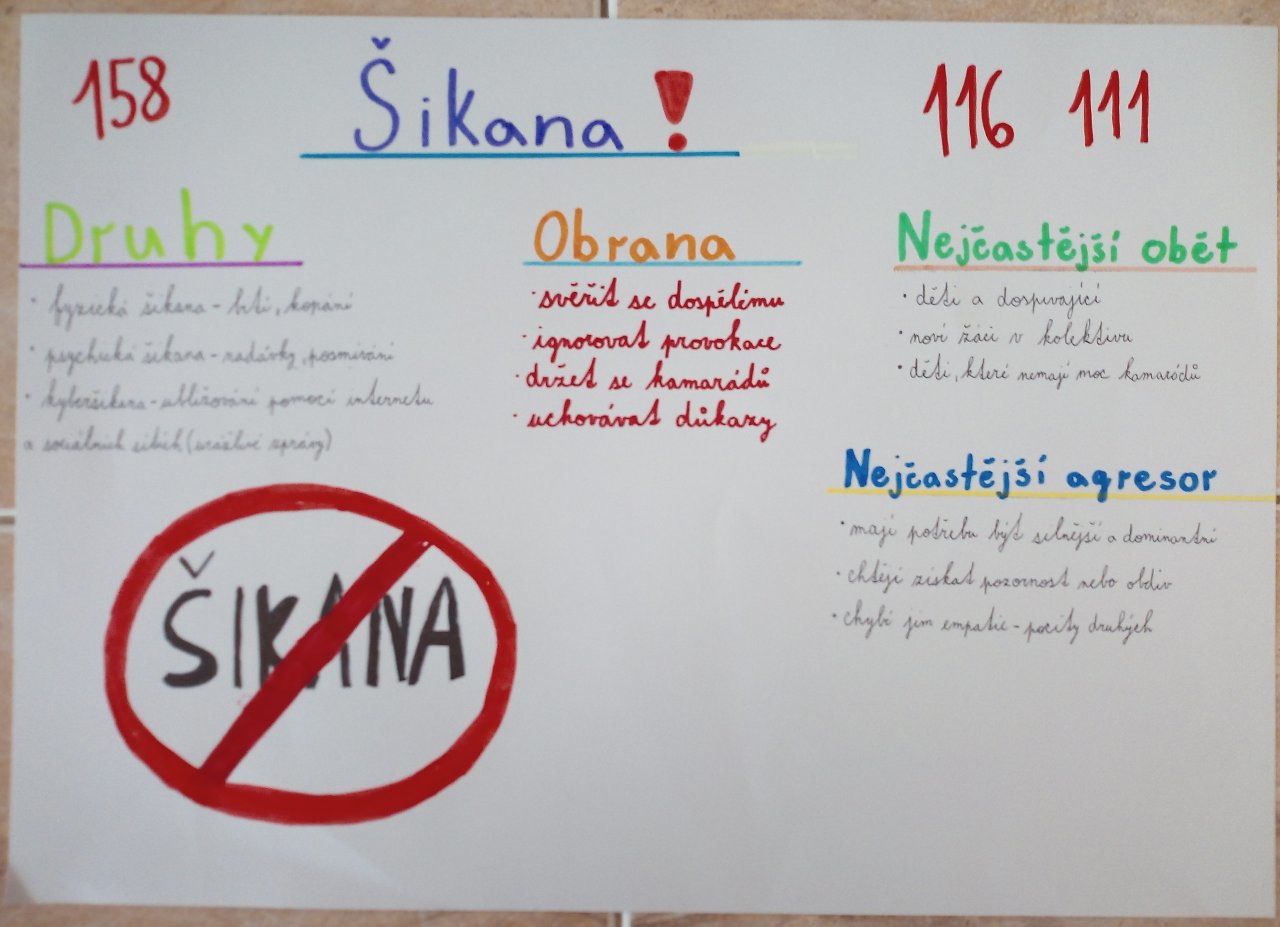 158
Šikana!
116 111
Druhy
· fyzická šikana - bití, kopání
· psychická šikana - nadávky, posmívání
· kyberšikana - ubližování pomocí internetu
a sociálních sítích (urážlivé zprávy)
Obrana
· svěřit se dospělému
· ignorovat provokace
· držet se kamarádů
· uchovávat důkazy
Nejčastější obět
· děti a dospívající
· noví žáci v kolektivu
· děti, které nemají moc kamarádů
Nejčastější agresor
· mají potřebu být silnější a dominantní
· chtějí získat pozornost nebo obdiv
· chybí jim empatie - pocity druhých
ŠIKANA